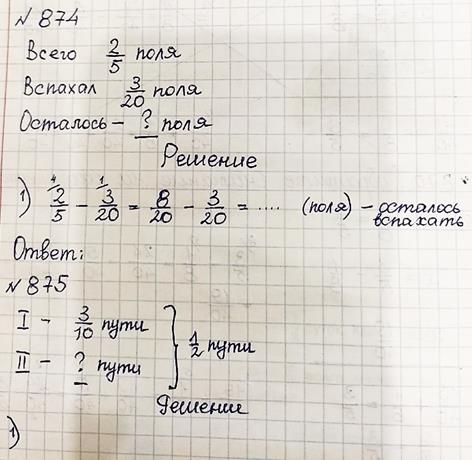 № 874
Всего 2/5 поля
Вспахал 3/20 поля
Осталось – ? поля
Решение
1) 2/5 (4) – 3/20 (1) = 8/20 – 3/20 = .... (поля) – осталось вспахать
Ответ:
№ 875
I – 3/10 пути
II – ? пути } 1/2 пути
Решение
1)